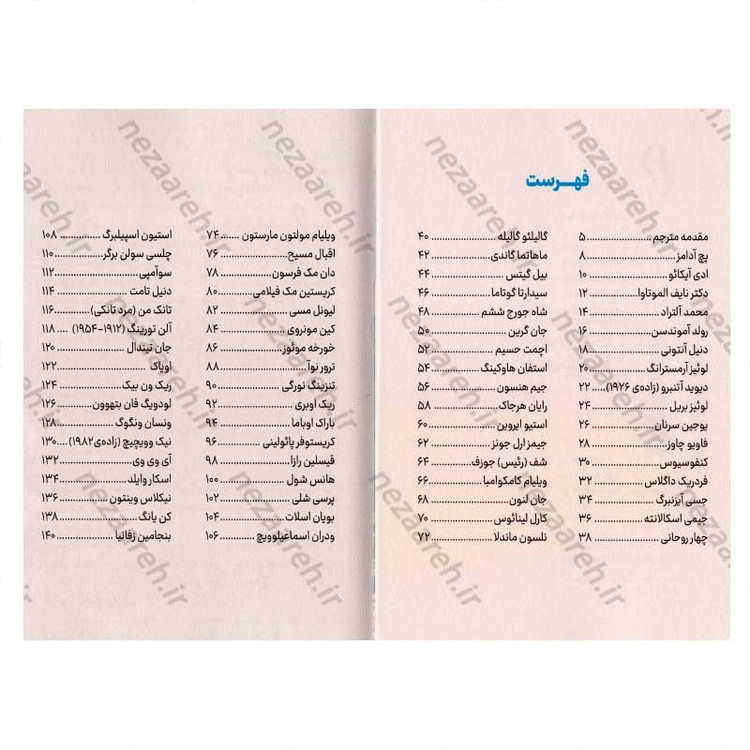 فهرست
مقدمه مترجم ..... ۵
پچ آدامز ..... ۸
ادی آیکائو ..... ۱۰
دکتر نایف الموتاوا ..... ۱۲
محمد آلتراد ..... ۱۴
رولد آموندسن ..... ۱۶
دنیل آنتونی ..... ۱۸
لوئیز آرمسترانگ ..... ۲۰
دیوید آتنبرو (زاده‌ی ۱۹۲۶) ..... ۲۲
لوئیز بریل ..... ۲۴
یوجین سرنان ..... ۲۶
فاویو چاوز ..... ۲۸
کنفوسیوس ..... ۳۰
فردریک داگلاس ..... ۳۲
جسی آیزنبرگ ..... ۳۴
جیمی اسکالانته ..... ۳۶
چهار روحانی ..... ۳۸
گالیلئو گالیله ..... ۴۰
ماهاتما گاندی ..... ۴۲
بیل گیتس ..... ۴۴
سیدارتا گوتاما ..... ۴۶
شاه جورج ششم ..... ۴۸
جان گرین ..... ۵۰
اچمت حسیم ..... ۵۲
استفان هاوکینگ ..... ۵۴
جیم هنسون ..... ۵۶
رایان هرجاک ..... ۵۸
استیو ایروین ..... ۶۰
جیمز ارل جونز ..... ۶۲
شف (رئیس) جوزف ..... ۶۴
ویلیام کامکوامبا ..... ۶۶
جان لنون ..... ۶۸
کارل لینائوس ..... ۷۰
نلسون ماندلا ..... ۷۲
ویلیام مولتون مارستون ..... ۷۴
اقبال مسیح ..... ۷۶
دان مک فرسون ..... ۷۸
کریستین مک فیلامی ..... ۸۰
لیونل مسی ..... ۸۲
کین مونروی ..... ۸۴
خورخه مونوز ..... ۸۶
ترور نوآ ..... ۸۸
تنزینگ نورگی ..... ۹۰
ریک اوبری ..... ۹۲
باراک اوباما ..... ۹۴
کریستوفر پائولینی ..... ۹۶
قیسلین رازا ..... ۹۸
هانس شول ..... ۱۰۰
پرسی شلی ..... ۱۰۲
بویان اسلات ..... ۱۰۴
ودران اسماعیلوویچ ..... ۱۰۶
استیون اسپیلبرگ ..... ۱۰۸
چلسی سولن برگر ..... ۱۱۰
سوآمپی ..... ۱۱۲
دنیل تامت ..... ۱۱۴
تانک من (مرد تانکی) ..... ۱۱۶
آلن تورینگ (۱۹۱۲-۱۹۵۴) ..... ۱۱۸
جان تیندال ..... ۱۲۰
اویاک ..... ۱۲۲
ریک ون بیک ..... ۱۲۴
لودویگ فان بتهوون ..... ۱۲۶
ونسان ونگوگ ..... ۱۲۸
نیک وویچیچ (زاده‌ی ۱۹۸۲) ..... ۱۳۰
آی وی وی ..... ۱۳۲
اسکار وایلد ..... ۱۳۴
نیکلاس وینتون ..... ۱۳۶
کن یانگ ..... ۱۳۸
بنجامین زفانیا ..... ۱۴۰
nezaareh.ir
nezaareh.ir
nezaareh.ir
nezaareh.ir
nezaareh.ir
nezaareh.ir
nezaareh.ir
nezaareh.ir
nezaareh.ir
nezaareh.ir
nezaareh.ir